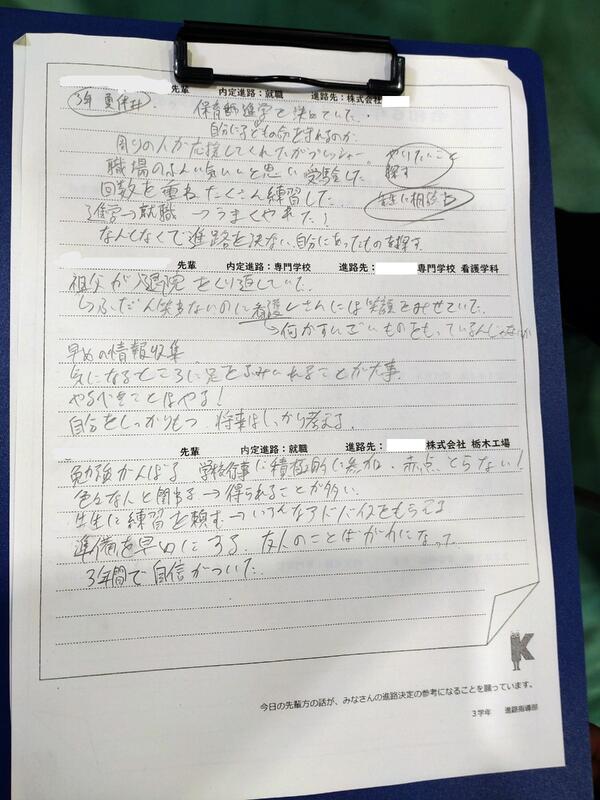 先輩 内定進路：就職 進路先：株式会社
3年 夏休み
保育師進学で決めていた。
自分に子どもの命を守れるのか
周りの人が応援してくれたがプレッシャー。 やりたいこと
職場のふんい気いいと思い受験した 探す
回数を重ねたくさん練習した 先生に相談も
進学→就職 →うまくやれた！
なんとなくで進路を決ない、自分にあったものを探す
先輩 内定進路：専門学校 進路先： 専門学校 看護学科
祖父が入退院をくり返していた。
→ふだん笑わないのに看護しさんには笑顔をみせていた。
→何かすいごいものをもっているんじゃないか
早めの情報収集
気になるところに足をふみいれることが大事
やるべきことはやる！
自分をしっかりもつ 将来はしっかり考える
先輩 内定進路：就職 進路先： 株式会社 栃木工場
勉強がんばる 学校行事に積極的に参加、赤点とらない！
色々な人と関わる→得られることが多い
先生に練習を頼む→いろんなアドバイスをもらえる
準備を早めにする、友人のことばが力になった
3年間で自信がついた
K
今日の先輩方の話が、みなさんの進路決定の参考になることを願っています。
3学年 進路指導部